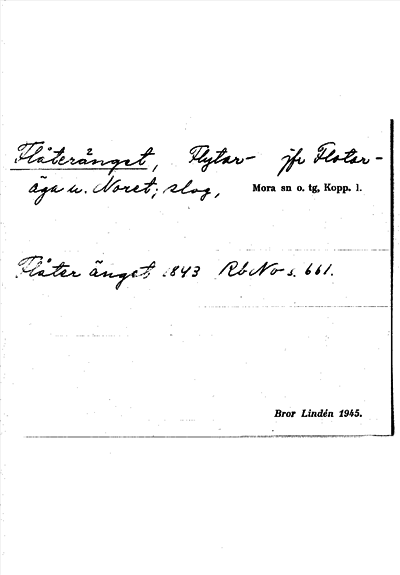 Flåteränget, Flytar- jfr Flotar-
äga u. Noret; slog, Mora sn o. tg, Kopp. l.
Flåter änget 1843 Rb No s. 661.
Bror Lindén 1945.